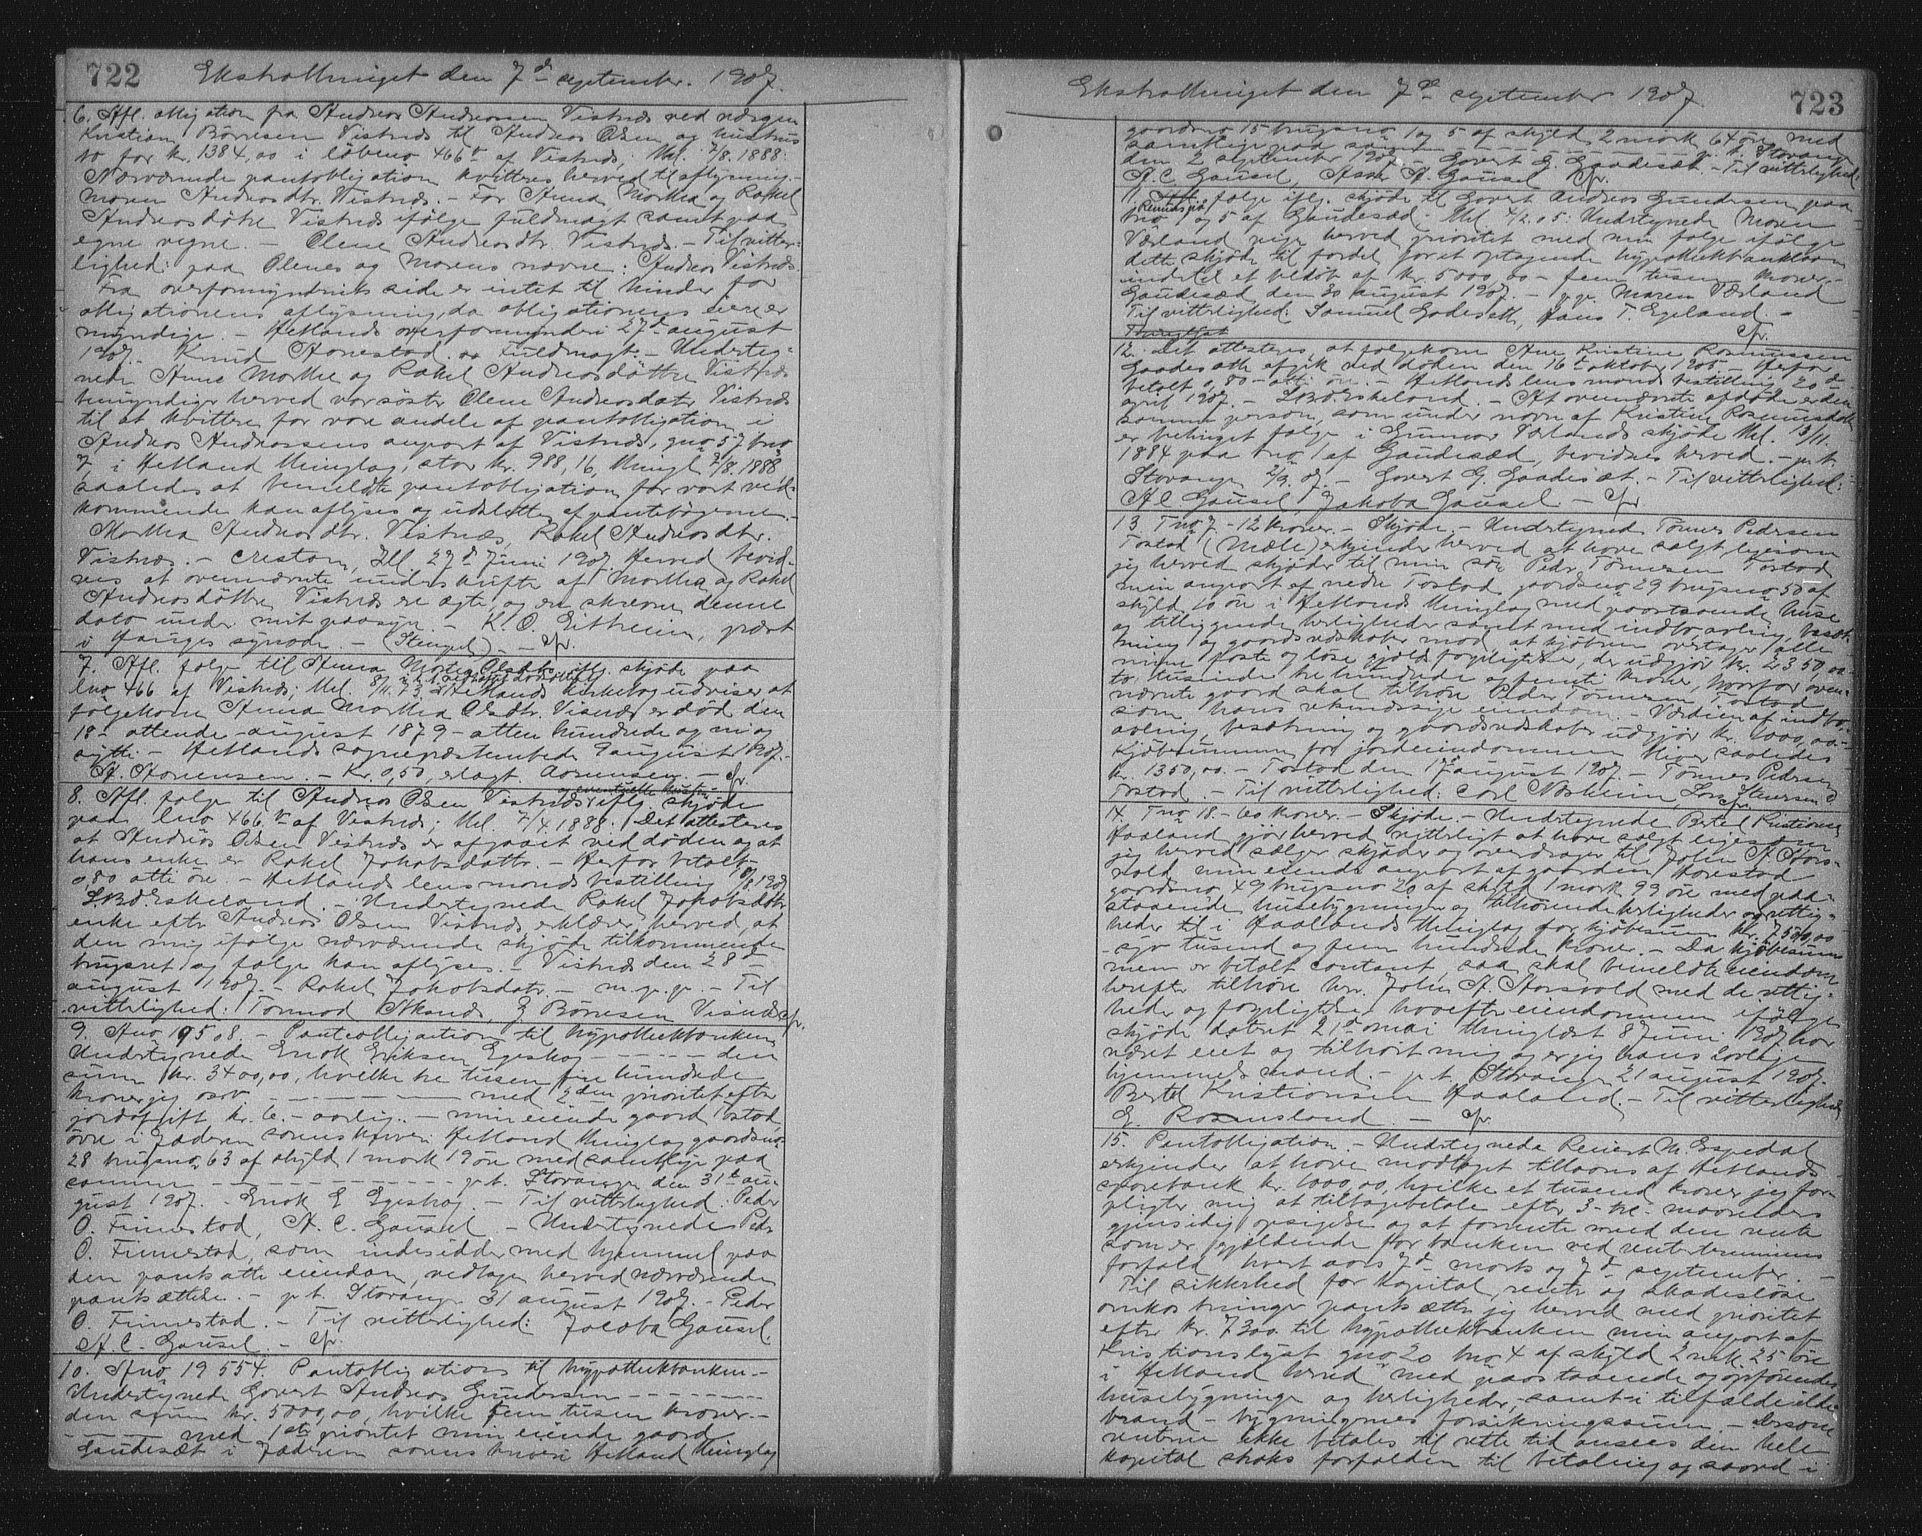 722 Ekstrathinget den 7de september 1907.
6. Afl. obligation fra Andreas Andreassen Vistnes ved værgen
Kristian Børresen Vistnes til Andreas Olsen og hustru
for kr. 1384,00 i löbeno 466 af Vistnes, thl. 7/8. 1888:
Nærværende pantobligation kvitteres herved til aflysning.-
Maren Andreasdtr. Vistnes. - For Anna Martha og Rakel
Andreasdötre Vistnes ifölge fuldmagt samt paa
egne vegne. - Olene Andreasdtr. Vistnes. - Til vitter-
lighed: paa Olenes og Marens navne: Andreas Vistnes
Fra overformynderiets side er intet til hinder for
obligationens aflysning, da obligationens eiere er
myndige. - Hetlands overformynderi 27de august
1907. Knud Aarrestad. Fuldmagt. - Underteg-
nede Anne Martha og Rakel Andreasdöttre Vistnes
bemyndiger herved vor söster Olene Andreasdatr. Vistnes
til at kvittere for vore andele af pantobligation i
Andreas Andreassens anpart af Vistnes, gno 57 bno
7 i Hetland thinglag, stor kr. 988,16, thingl. 7/8. 1888,
saaledes at bemeldte pantobligation for vort ved-
kommende kan aflyses og udslettes af pantebögerne.
Martha Andreasdtr. Vistnes, Rakel Andreasdtr.
Vistnes. - Creston, Ill. 27de Juni 1907. Herved bevid-
nes at ovennævnte underskrifter af Martha og Rakel
Andreasdöttre Vistnes er ægte, og er skrevne denne
dato under mit paasyn. - K. O. Eittreim, præst
i Hauges synode. - (Stempel) - Cfr.
7. Afl. folge til Anna Martha Olsdtr. iflg. skjöde paa
lno 466 af Vistnes; thl. 8/11. 73: Hetlands kirkebog udviser at
folgekone Anna Martha Olsdtr. Visnes er död den
18- attende - august 1879 - atten hundrede og ni og
sytti. - Hetlands sogneprestembede 9 august 1907.
Kr. 0,50, erlagt. - Cfr.
8. Afl. folge til Andreas Olsen Vistnes og eventuelle hustru iflg. skjöde
paa lno 466 af Vistnes; thl. 7/4. 1888: Det attesteres
at Andreas Olsen Vistnes er afgaaet ved döden og at
hans enke er Rakel Jakobsdattr. - Herfor betalt
0,80 otti öre. - Hetlands lensmands bestilling 8/8 1907
Eskeland. - Undertegnede Rakel Jakobsdatr.
enke eftr. Andreas Olsen Vistnes erklærer herved, at
den mig ifölge nærværende skjöde tilkommende
brugsret og folge kan aflyses. - Vistnes den 28de
august 1907. - Rakel Jakobsdatr. - m. p. p. - Til
vitterlighed: Tormod Aklands, G. Börresen Visnes Cfr.
9. Ano 19508. - Panteobligation til hypothekbanken
Undertegnede Enok Eriksen Egeskog - - - - - den
sum kr. 3400,00, hvilke tre tusen fire hundrede
kroner jeg osv. - - - - med 2den prioritet efter
jordafgift kr. 6. - aarlig. - min eiende gaard Tostad,
övre i Jæderen sorenskriveri Hetland thinglag gaardsno.
28 brugsno 63 af skyld 1 mark 19 öre med samtlige paa
samme - - - - p. t. Stavanger den 31te au-
gust 1907. - Enok E Egeskog. - Til vitterlighed: Peder
O. Finnestad, A. C. Gausel. - Undertegnede Pedr
O. Finnestad, som indesidder med hjemmel paa
den pantsatte eiendom, vedtager herved nærværende
pantsættelse. - p. t. Stavanger 31 august 1907. - Peder
O. Finnestad. - Til vitterlighed: Jakoba Gausel.
A. C. Gausel. - Cfr.
10. Ano 19554. Pantobligation til hypothekbanken -
Undertegnede Govert Andreas Gundersen - - - -
den sum kr. 5000,00, hvilke fem tusen kroner. -
- - - med 1ste prioritet min eiende gaard
Gaudesæt i Jæderen sorenskriveri Hetland thinglag
Ekstrathinget den 7de september 1907. 723
gaardsno 15 brugsno 1 og 5 af skyld 2 mark 64 öre med
samtlige paa samme - - - - p. t. Stavanger
den 2 september 1907. - Govert G. Gaudesæt. - Til vitterlighed:
A. C. Gausel, Aase A. Gausel Cfr.
11. folge iflg. skjöde til Govert Andreas Gundersen paa
bno 1 og 5 af Gaudesæd. thl. 4/2. 05: Undertegnede Maren
Værland viger herved prioritet med min folge ifölge
dette skjöde til fordel for et optagende hypothekbanklaan
indtil et belöb af kr. 5000,00 - fem tusen kroner -
Gaudesæd den 30 august 1907. - p. p. Maren Værland
Til vitterlighed: Samuel Godeseth, Hans T. Egeland. -
Cfr.
12. Det attesteres at folgekone Ane Kristine Rasmussen
Gaadesatte afgik ved döden den 16te oktober 1905 - Herfor
betalt 0,80 - otti öre. - Hetlands lensmands bestilling 20de
april 1907. - Eskeland. - At ovennævnte afdöde er den
samme person, som under navn af Kristine Rasmusdatr.
er betinget folge i Gunnar Værlands skjöde thl. 13/11.
1884 paa bno 1 af Gaudesæd, bevidnes herved. - p. t.
Stavanger 2/9 07. - Govert G. Gaadesæt. - Til vitterlighed:
A C Gausel, Jakoba Gausel - Cfr.
13. Tno 7. - 12 kroner. - Skjöde. - Undertegnede Tönnes Pedersen
Tostad (Mæle) erkjender herved at have solgt, ligesom
jeg herved skjöder til min sön Pedr. Tönnesen Tostad
min anpart af nedre Tostad gaardsno 29 brugsno 50 af
skyld 10 öre i Hetlands thinglag med paastaaende huse
og tilliggende herligheder samt med indbo, avling, besæt-
ning og gaardsredskaber mod at kjöberen overtager alle
mine faste og löse gjældsforpligtelser, der udgjör kr. 2350,00
to tusinde tre hundrede og femti kroner, hvorfor oven-
nævnte gaard skal tilhöre Peder Tönnesen Tostad
som hans retmæssige eiendom. - Værdien af indbo,
avling, besætning og gaardsredskaber udgjör kr. 1000,00 -
Kjöbesummen for jordeiendommen bliver saaledes
kr. 1350,00. - Tostad den 17de august 1907. - Tönnes Pedersen
Tostad. - Til vitterlighed: Carl Norheim, Lars Iversen Cfr.
14. Tno 18. - 60 kroner. - Skjöde. - Undertegnede Bertel Kristiansen
Haaland gjör herved vitterligt at have solgt ligesom
jeg herved sælger skjöder og overdrager til John A. Stors-
vold min eiende anpart af gaarden Harestad
gaardsno 49 brugsno 20 af skyld 1 mark 99 öre med paa-
staaende husebygninger og tilhörende herligheder og rettig-
heder til i Haalands thinglag for kjöbesum kr. 7500,00
- syv tusind og fem hundrede kroner. - Da kjöbesum-
men er betalt contant, saa skal bemeldte eiendom
herefter tilhöre hr. John A. Storsvold med de rettig-
heder og forpligtelser hvorefter eiendommen ifölge
skjöde dateret 21de mai thinglæst 8 juni 1907 har
været eiet og tilhört mig og er jeg hans lovlige
hjemmelsmand. - p. t. Stavanger 21 august 1907.
Bertel Kristiansen Haaland. - Til vitterlighed:
E. Rosnesland. - Cfr.
15. Pantobligation. - Undertegnede Reiert M. Espedal
erkjender at have modtaget tillaans af Hetlands
sparebank kr. 1000,00, hvilke et tusend kroner jeg for-
pligter mig at tilbagebetale efter 3 - tre - maaneders
gjensidig opsigelse og at forrente med den rente
som er gjældende for banken ved renteterminens
forfald hvert aars 7de marts og 7de september. -
Til sikkerhed for kapital, renter og skadeslöse
omkostninger pantsætter jeg herved med prioritet
efter kr. 7300 til hypothekbanken min anpart af
Kristianslyst gno 20 bno 4 af skyld 2 mrk. 25 öre
i Hetland herred med paastaaende og opförendes
husebygninger og herligheder, samt i tilfælde ilds-
brand - bygningernes forsikringssum. - Dersom
renterne ikke betales til rette tid ansees den hele
kapital straks forfalden til betaling og saavel i